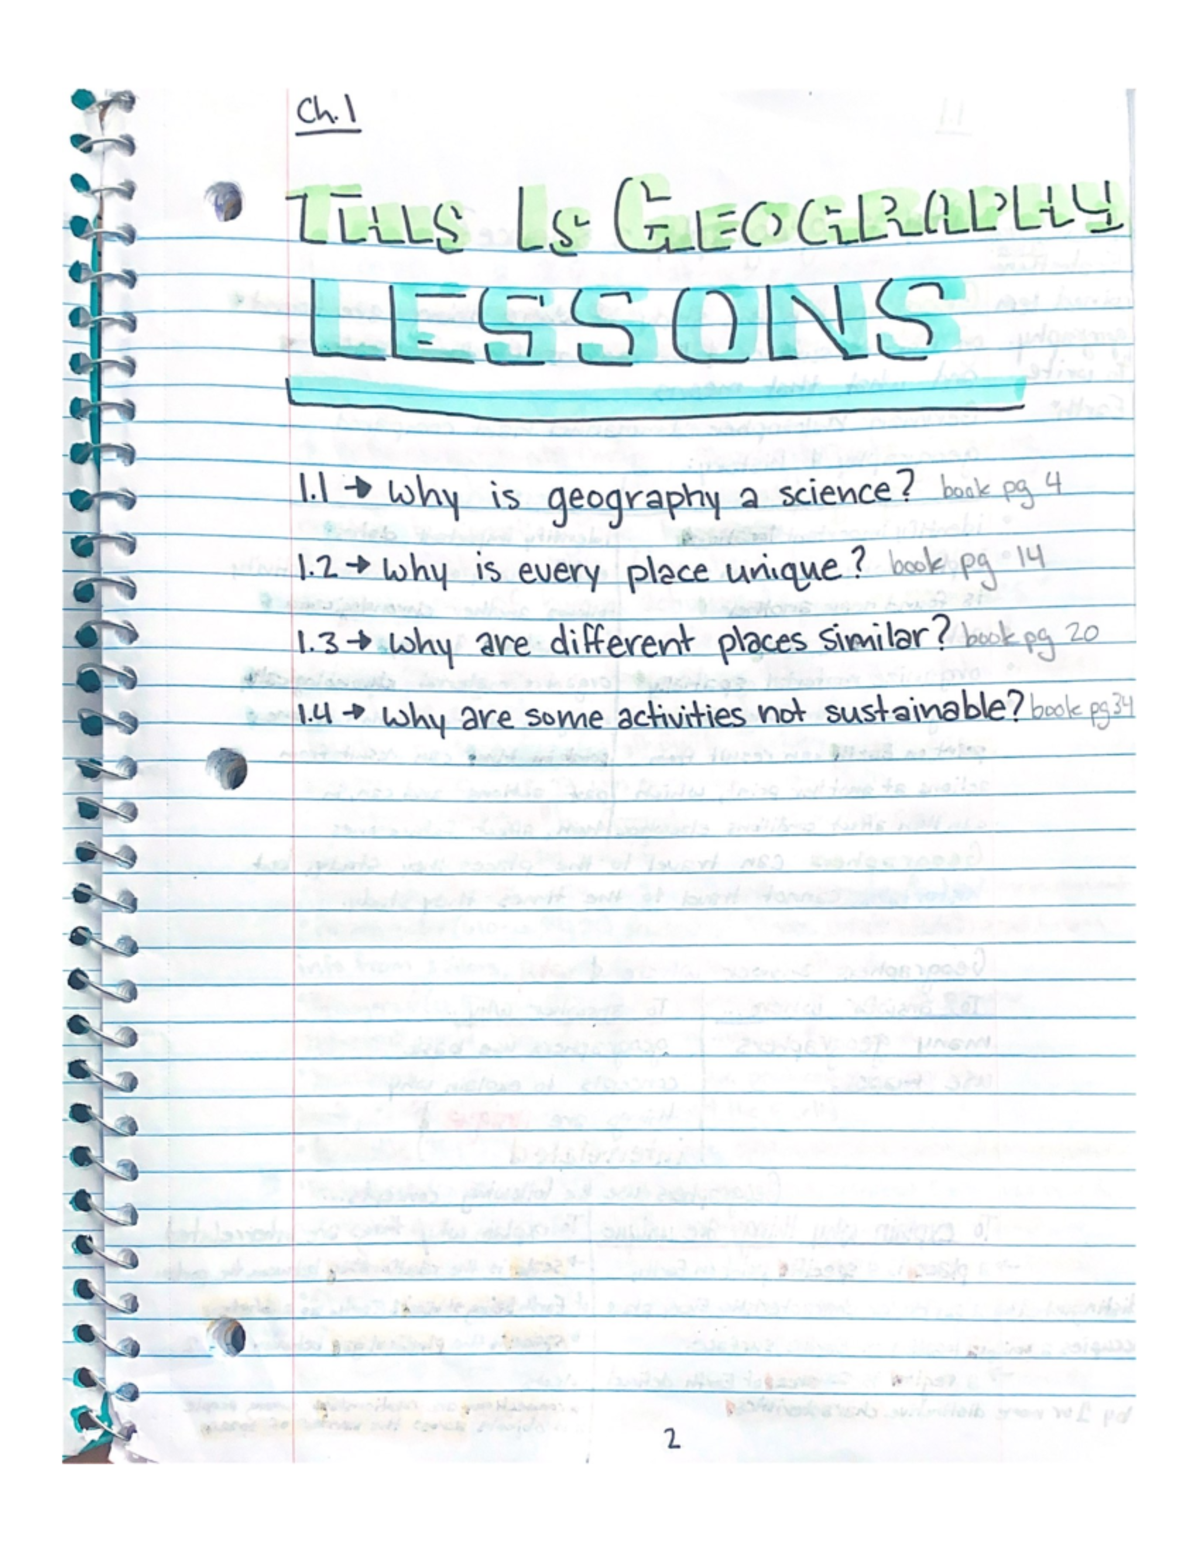 Ch. 1
THIS IS GEOGRAPHY
LESSONS
1.1 → Why is geography a science? book pg 4
1.2 → Why is every place unique? book pg 14
1.3 → Why are different places similar? book pg 20
1.4 → Why are some activities not sustainable? book pg 34
2